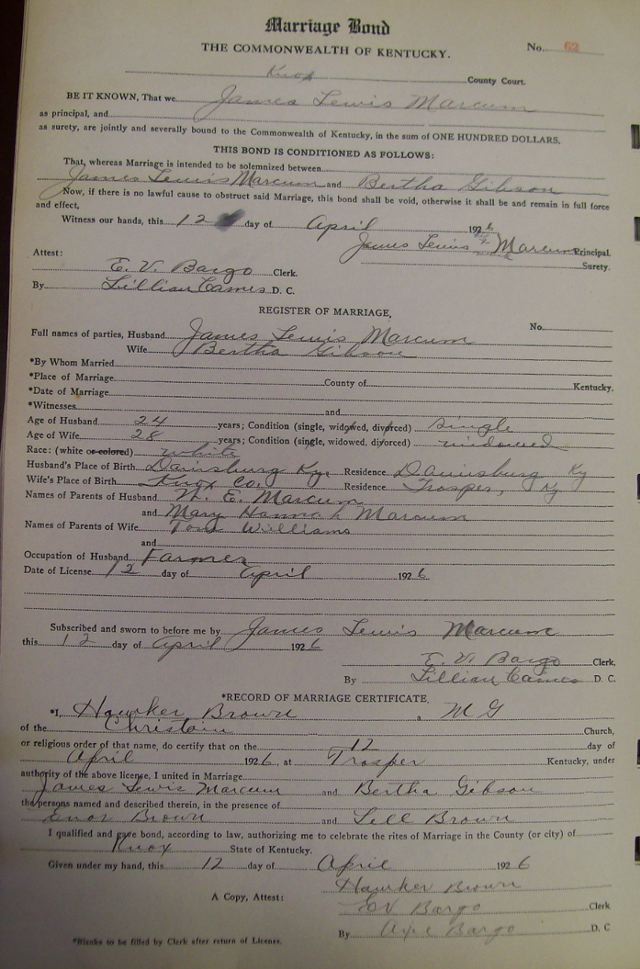 Marriage Bond
THE COMMONWEALTH OF KENTUCKY.
No. 62
Knox County Court.
BE IT KNOWN, That we James Lewis Marcum
as principal, and
as surety, are jointly and severally bound to the Commonwealth of Kentucky, in the sum of ONE HUNDRED DOLLARS.
THIS BOND IS CONDITIONED AS FOLLOWS:
That, whereas Marriage is intended to be solemnized between
James Lewis Marcum and Bertha Gibson
Now, if there is no lawful cause to obstruct said Marriage, this bond shall be void, otherwise it shall be and remain in full force
and effect,
Witness our hands, this 12 day of April 1926
James Lewis Marcum Principal.
Surety.
Attest:
E. V. Bargo Clerk.
By Lillian Eames D. C.
REGISTER OF MARRIAGE,
No.
Full names of parties, Husband James Lewis Marcum
Wife Bertha Gibson
*By Whom Married
*Place of Marriage County of Kentucky.
*Date of Marriage
*Witnesses and
Age of Husband 24 years; Condition (single, widowed, divorced) single
Age of Wife 28 years; Condition (single, widowed, divorced) widowed
Race: (white or colored) white
Husband's Place of Birth Ky. Residence Ky
Wife's Place of Birth Knox Co. Residence Trosper, Ky
Names of Parents of Husband W. E. Marcum
and Mary Hannah Marcum
Names of Parents of Wife Tom Williams
and
Occupation of Husband Farmer
Date of License 12 day of April 1926
Subscribed and sworn to before me by James Lewis Marcum
this 12 day of April 1926
E. V. Bargo Clerk,
By Lillian Eames D. C.
*RECORD OF MARRIAGE CERTIFICATE,
*I, Hawker Brown, M G
of the Christain Church,
or religious order of that name, do certify that on the 12 day of
April 1926, at Trosper Kentucky, under
authority of the above license, I united in Marriage
James Lewis Marcum and Bertha Gibson
the persons named and described therein, in the presence of
Brown and Lell Brown
I qualified and gave bond, according to law, authorizing me to celebrate the rites of Marriage in the County (or city) of
Knox State of Kentucky.
Given under my hand, this 12 day of April 1926
Hawker Brown
A Copy, Attest: EV Bargo Clerk
By Bargo D. C
*Blanks to be filled by Clerk after return of License.